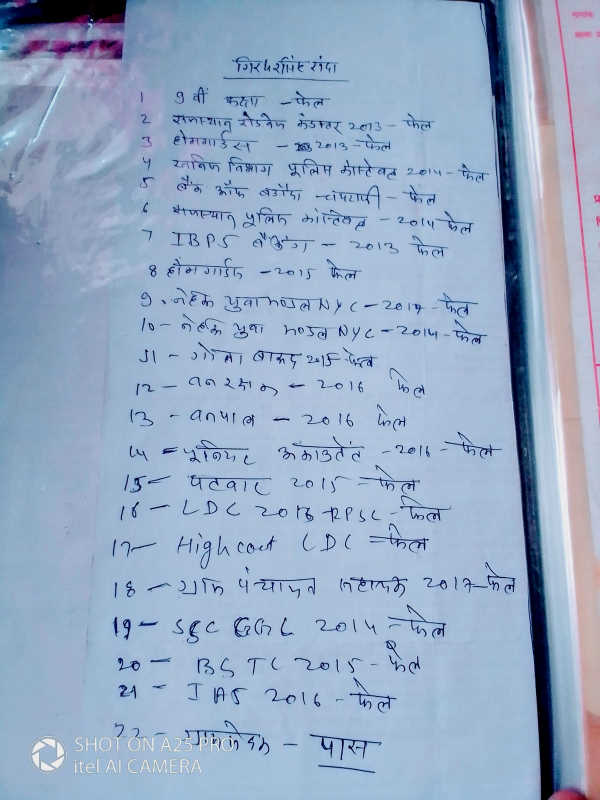 गिरधरसिंह रांदा
1 9 वीं कक्षा - फेल
2 राजस्थान रोडवेज कंडक्टर 2013 - फेल
3 होमगार्डस - 2013 - फेल
4 विभाग पुलिस कांस्टेबल 2014 - फेल
5 बैंक ऑफ बडौदा - चपरासी - फेल
6 राजस्थान पुलिस कांस्टेबल - 2014 - फेल
7 IBPS बैंकिंग - 2013 फेल
8 होमगार्ड - 2015 फेल
9. नेहरू युवा मण्डल NYC - 2017 - फेल
10 - नेहरू युवा मण्डल NYC - 2014 - फेल
11 - गोला बारूद 2015 - फेल
12 - वनरक्षक - 2016 फेल
13 - वनपाल - 2016 फेल
14 = जूनियर अकाउंटेंट - 2016 - फेल
15 - पटवार 2015 - फेल
16 - LDC 2013 RPSC - फेल
17 - High cout LDC - फेल
18 - ग्राम पंचायत सहायक 2017 - फेल
19 - SSC CGL 2014 - फेल
20 - BSTC 2015 - फेल
21 - IAS 2016 - फेल
22 - - पास
SHOT ON A25 PRO
itel AI CAMERA